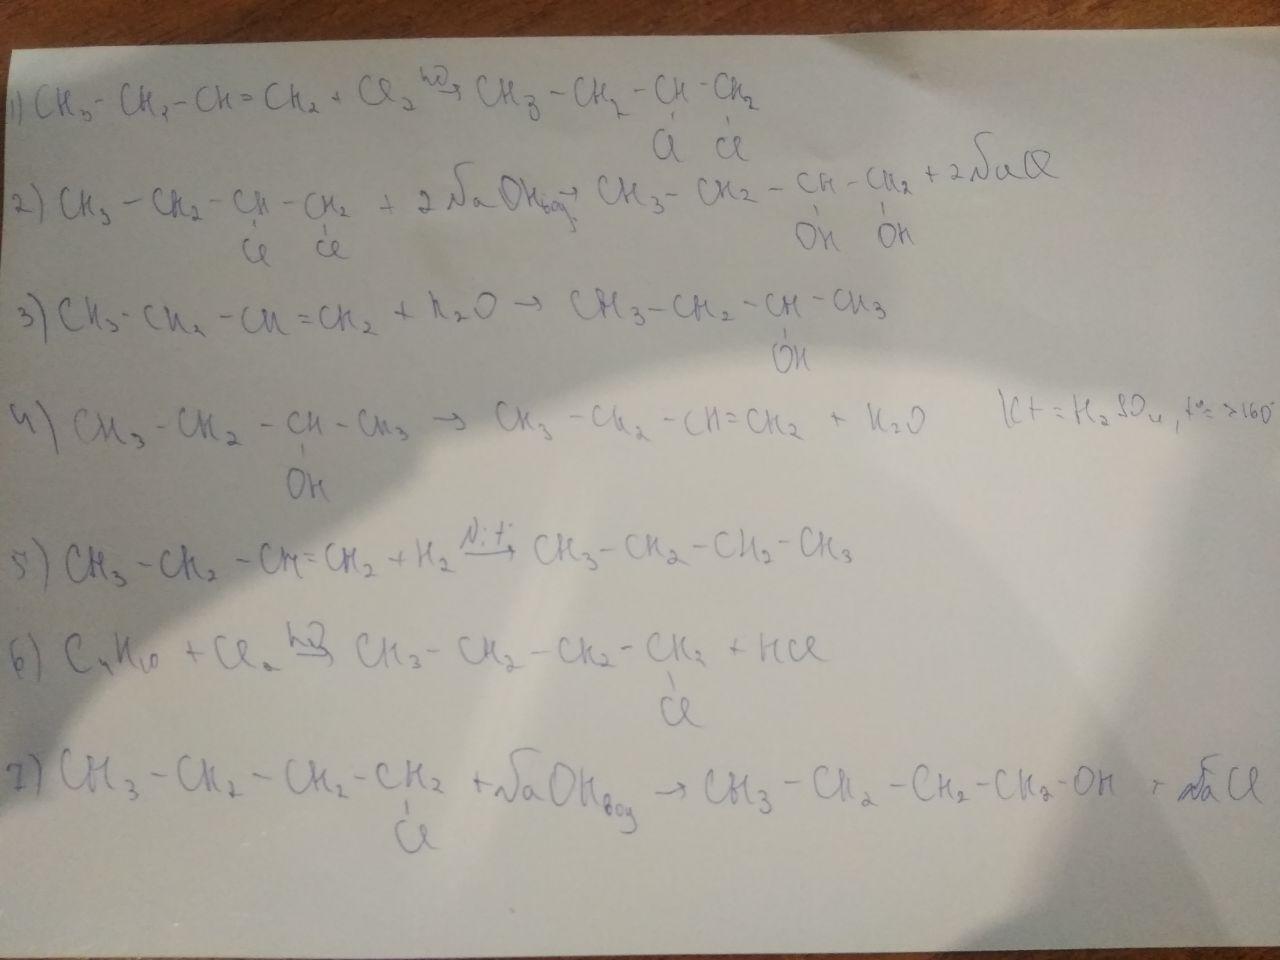 1) CH3-CH2-CH=CH2 + Cl2 hν→ CH3-CH2-CH-CH2
Cl Cl
2) CH3-CH2-CH-CH2 + 2NaOHвод→ CH3-CH2-CH-CH2 + 2NaCl
Cl Cl OH OH
3) CH3-CH2-CH=CH2 + H2O → CH3-CH2-CH-CH3
OH
4) CH3-CH2-CH-CH3 → CH3-CH2-CH=CH2 + H2O Kt=H2SO4, t°=>160°
OH
5) CH3-CH2-CH=CH2 + H2 Ni t→ CH3-CH2-CH2-CH3
6) C4H10 + Cl2 hν→ CH3-CH2-CH2-CH2 + HCl
Cl
7) CH3-CH2-CH2-CH2 + NaOHвод → CH3-CH2-CH2-CH2-OH + NaCl
Cl